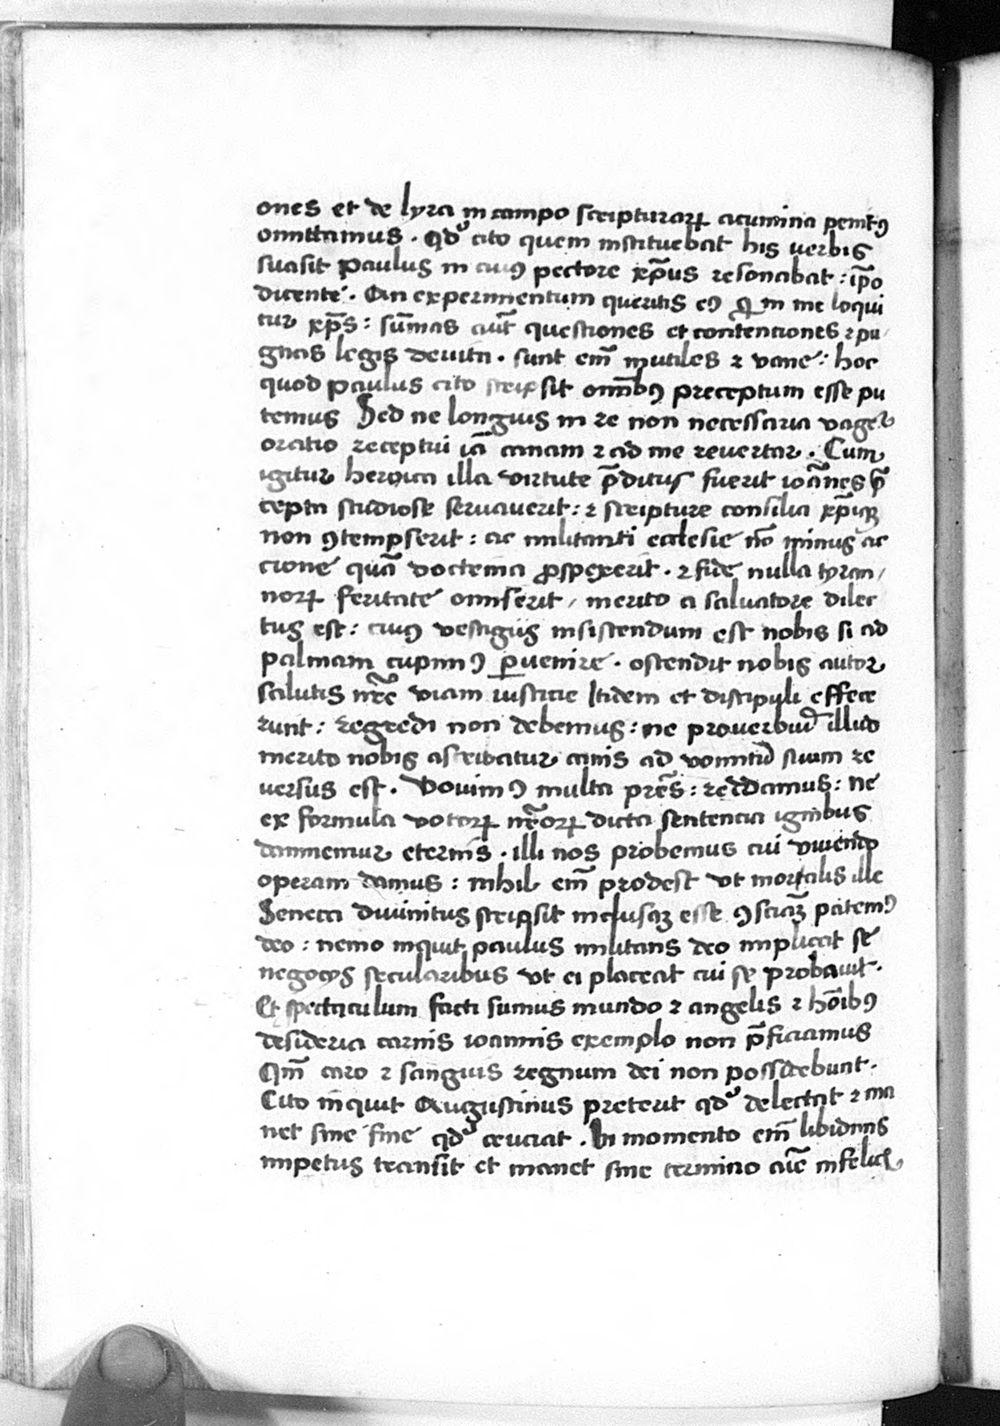 ones et de lyra in campo scripturaꝝ acumina penitꝰ
omittamus . qd' cito quem instituebat his verbis
suasit Paulus in cuiꝰ pectore xp̄us resonabat : ip̄o
dicente . An experimentum queritis eiꝰ qui in me loqui
tur xp̄s : sum̄as aut̄ questiones et contentiones ⁊ pu
gnas legis devita . sunt em̄ inutiles ⁊ vane : hoc
quod paulus cito scripsit om̄ibꝰ preceptum esse pu
temus Sed ne longius in re non necessaria vager
oratio receptui iā canam ⁊ ad me revertar . Cum
igitur heroica illa virtute p̄ditus fuerit ioānes p̄
cepta studiose servaverit : ⁊ scripture consilia xp̄iqꝫ
non ꝯtempserit : ac militanti ecclesie nō minus ac
cione quā doctrina ꝓspexerit . ⁊ fidē nulla tyran
noꝝ feritate omiserit , merito a salvatore dilec
tus est : cuiꝰ vestigiis insistendum est nobis si ad
palmam cupimꝰ ꝑvenire . ostendit nobis autor
salutis nr̄e viam iusticie Itidem et discipuli effece
runt : regredi non debemus : ne proverbiū illud
merito nobis ascribatur canis ad vomitū suum re
versus est . Vovimꝰ multa pr̄es : reddamus : ne
ex formula votoꝝ nr̄oꝝ dicta sentencia ignibus
damnemur eternis . illi nos probemus cui vivendo
operam damus : nihil em̄ prodest ut mortalis ille
Seneca divinitus scripsit inclusaꝫ esse ꝯsciaꝫ patemꝰ
deo : nemo inquit paulus militans deo implicat se
negocijs secularibus ut ei placeat cui se probavit .
Et spectaculum facti sumus mundo ⁊ angelis ⁊ hoībꝰ
desideria carnis ioannis exemplo non p̄ficiamus
Qm̄ caro ⁊ sanguis regnum dei non possidebunt .
Cito inquit Augustinus preterit qd' delectat ⁊ ma
net sine fine qd' cruciat . In momento em̄ libidinis
impetus transit et manet sine termino aīe infelicis